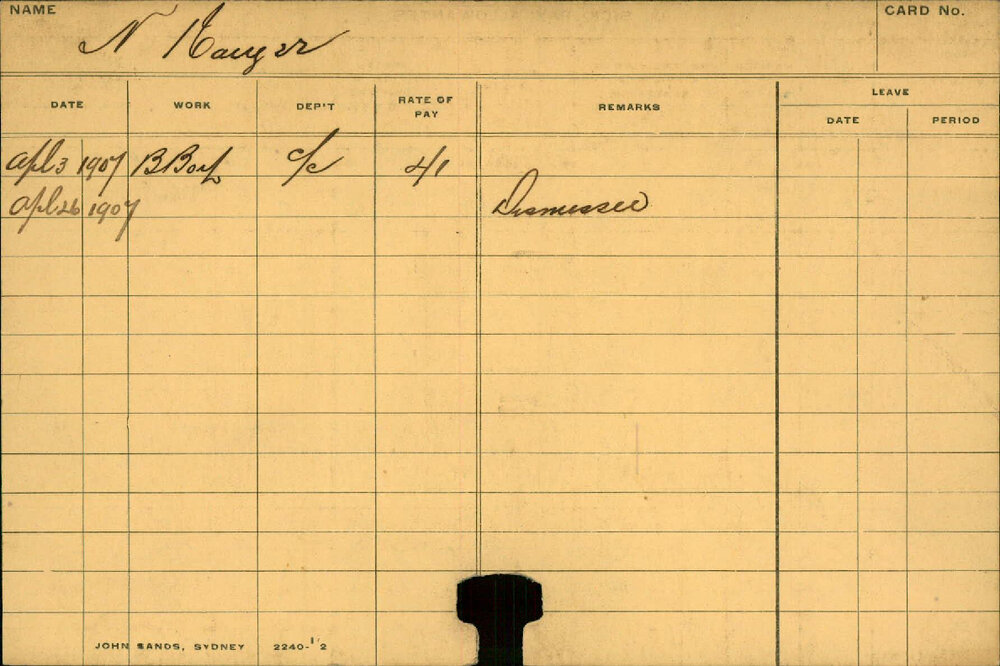 NAME
CARD No.
N
DATE WORK DEP'T RATE OF PAY REMARKS LEAVE
DATE PERIOD
Apl 3 1907 B Boy c/c 4/
Apl 26 1907 Dismissed
JOHN SANDS, SYDNEY 2240-1/2